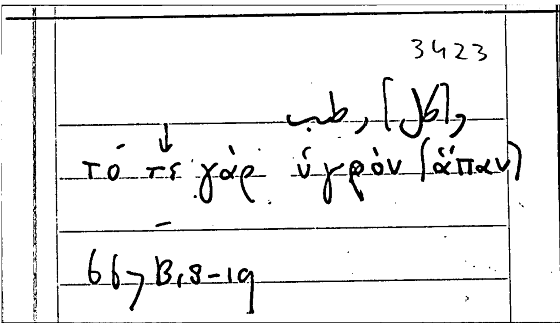 3423
رطب, [كل],
τό τε γὰρ ὑγρὸν (ἅπαν)
66, B, 8-19